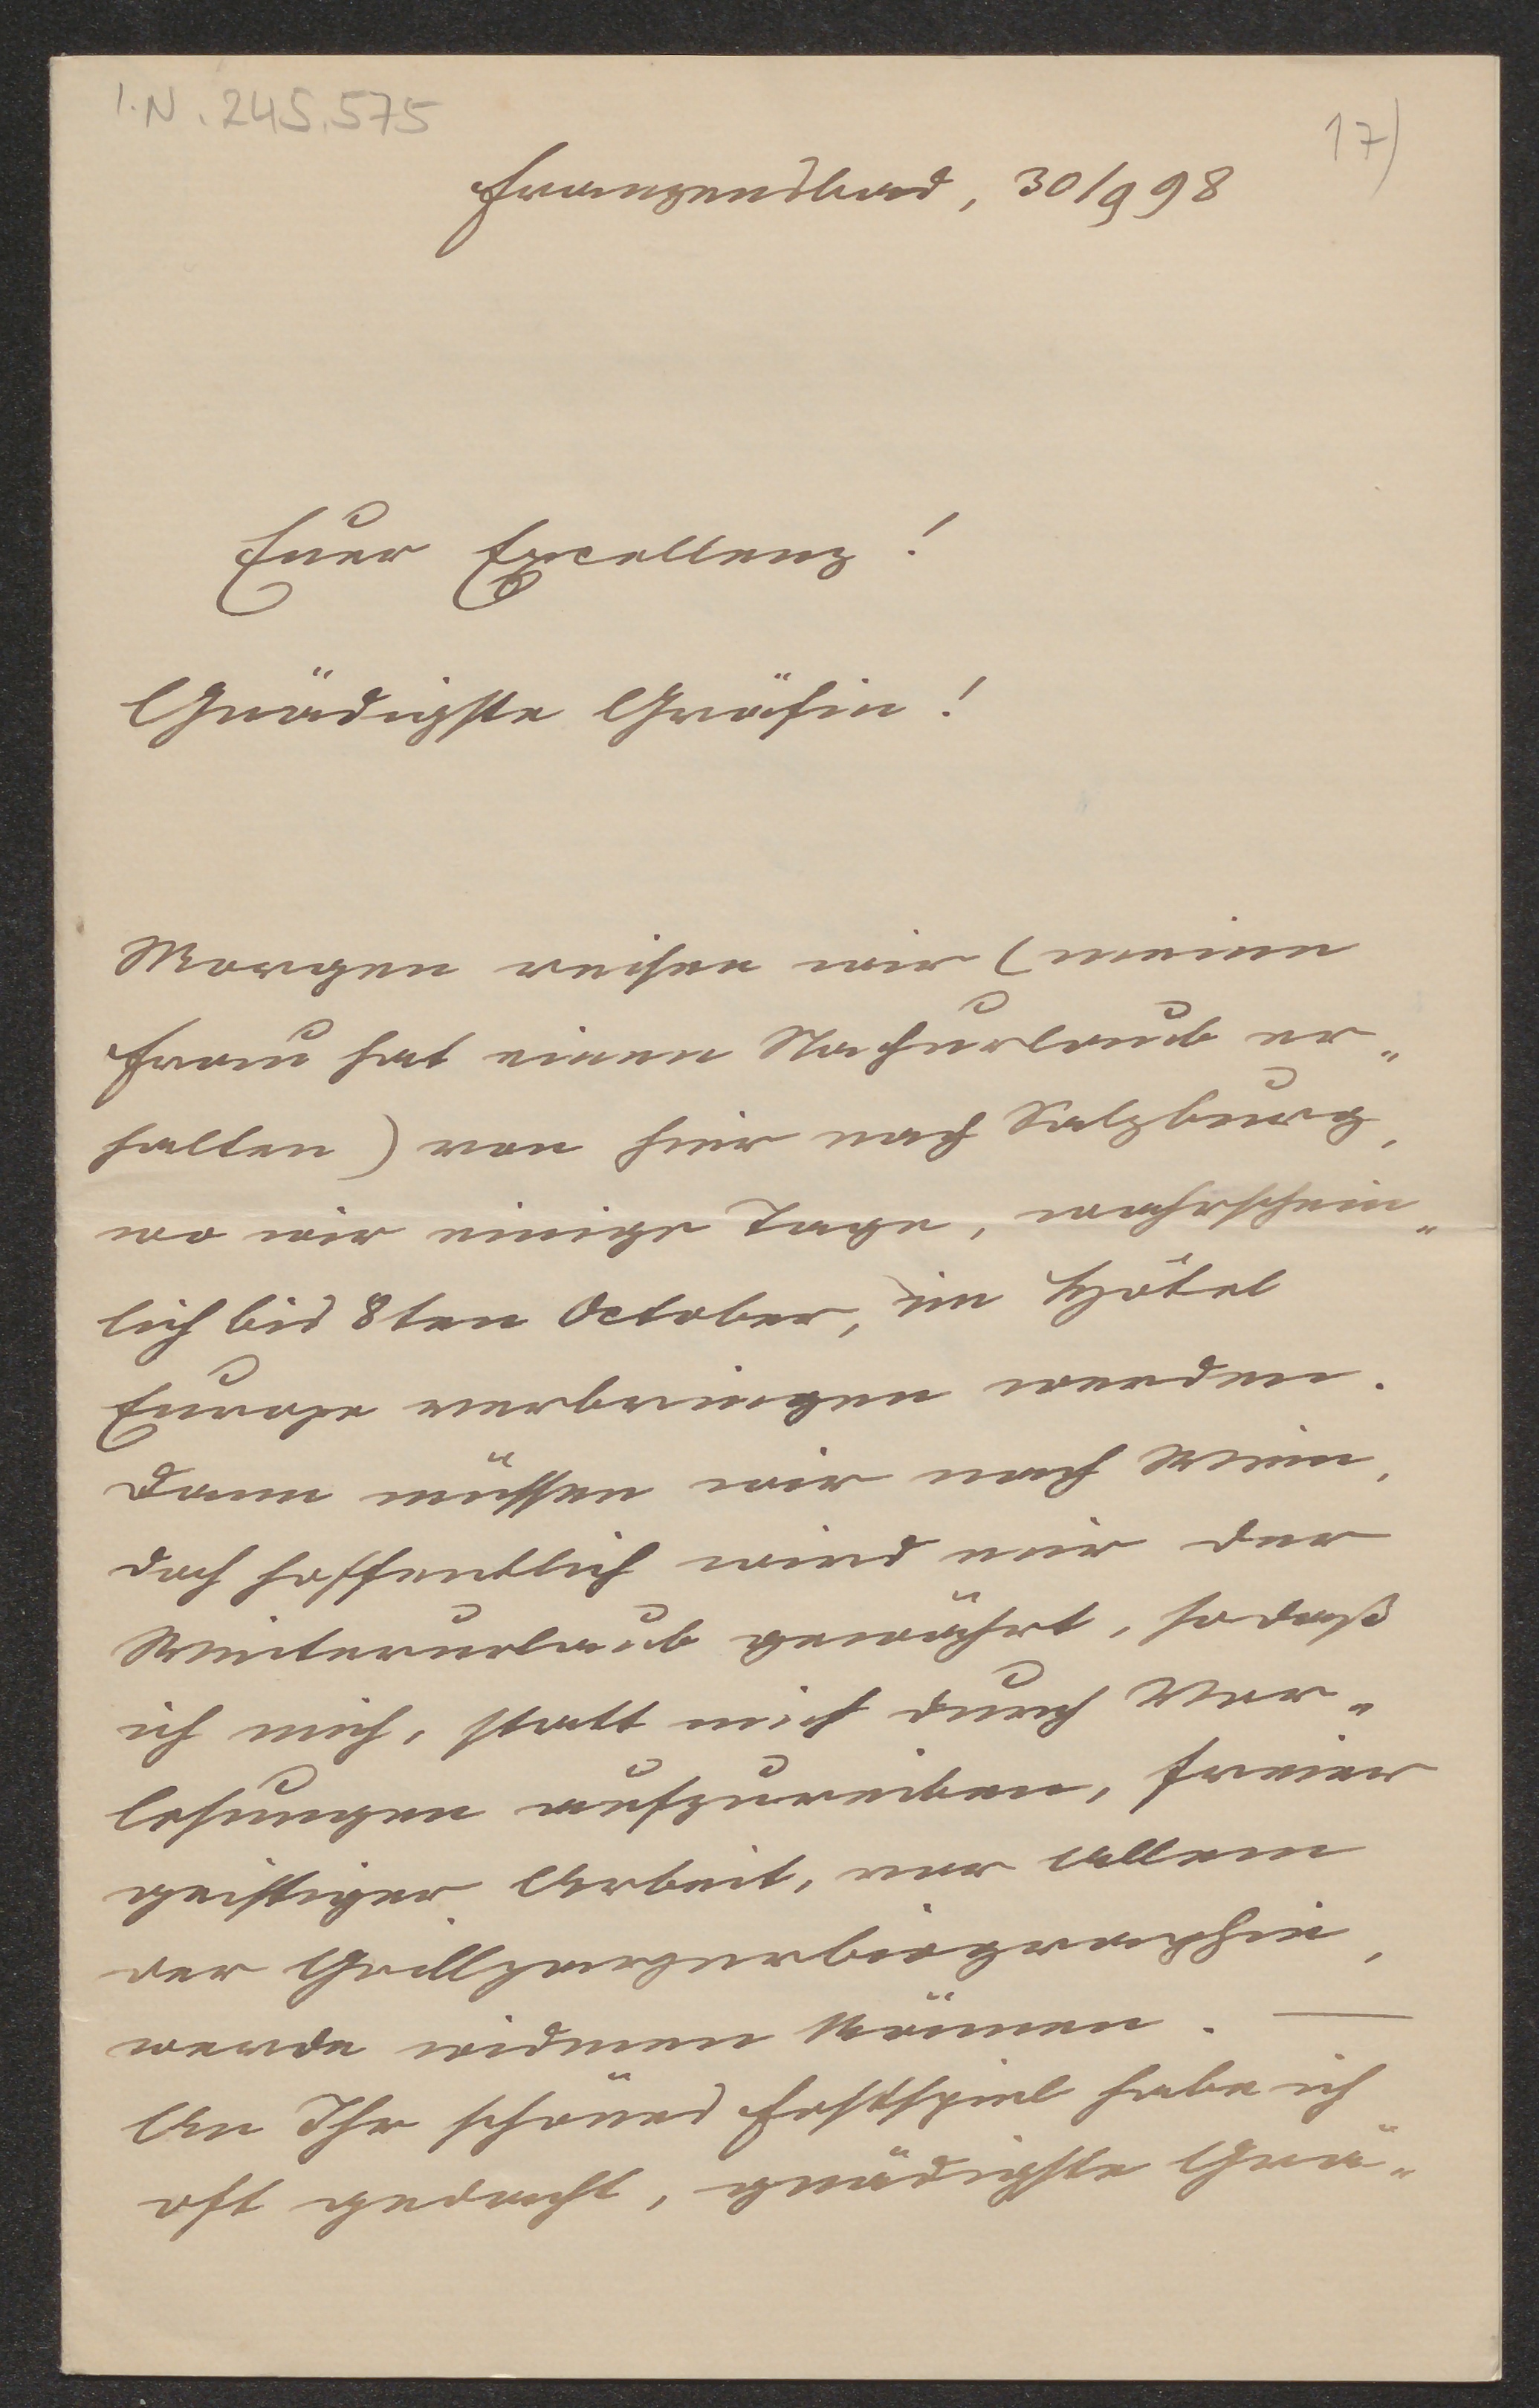 I.N. 245.575
17)
Franzensbad, 30/9 98
Euer Excellenz!
Gnädigste Gräfin!
Morgen reisen wir (meine
Frau hat einen Nachurlaub er„
halten) von hier nach Salzburg,
wo wir einige Tage, wahrschein„
lich bis 8ten October, im Hôtel
Europe verbringen werden.
Dann müssen wir nach Wien,
doch hoffentlich wird mir der
Winterurlaub gewährt, sodaß
ich mich, statt mich durch Vor„
lesungen aufzureiben, freier
geistiger Arbeit, vor Allem
der Grillparzerbiographie,
werde widmen können. —
An Ihr schönes Festspiel habe ich
oft gedacht, gnädigste Grä„